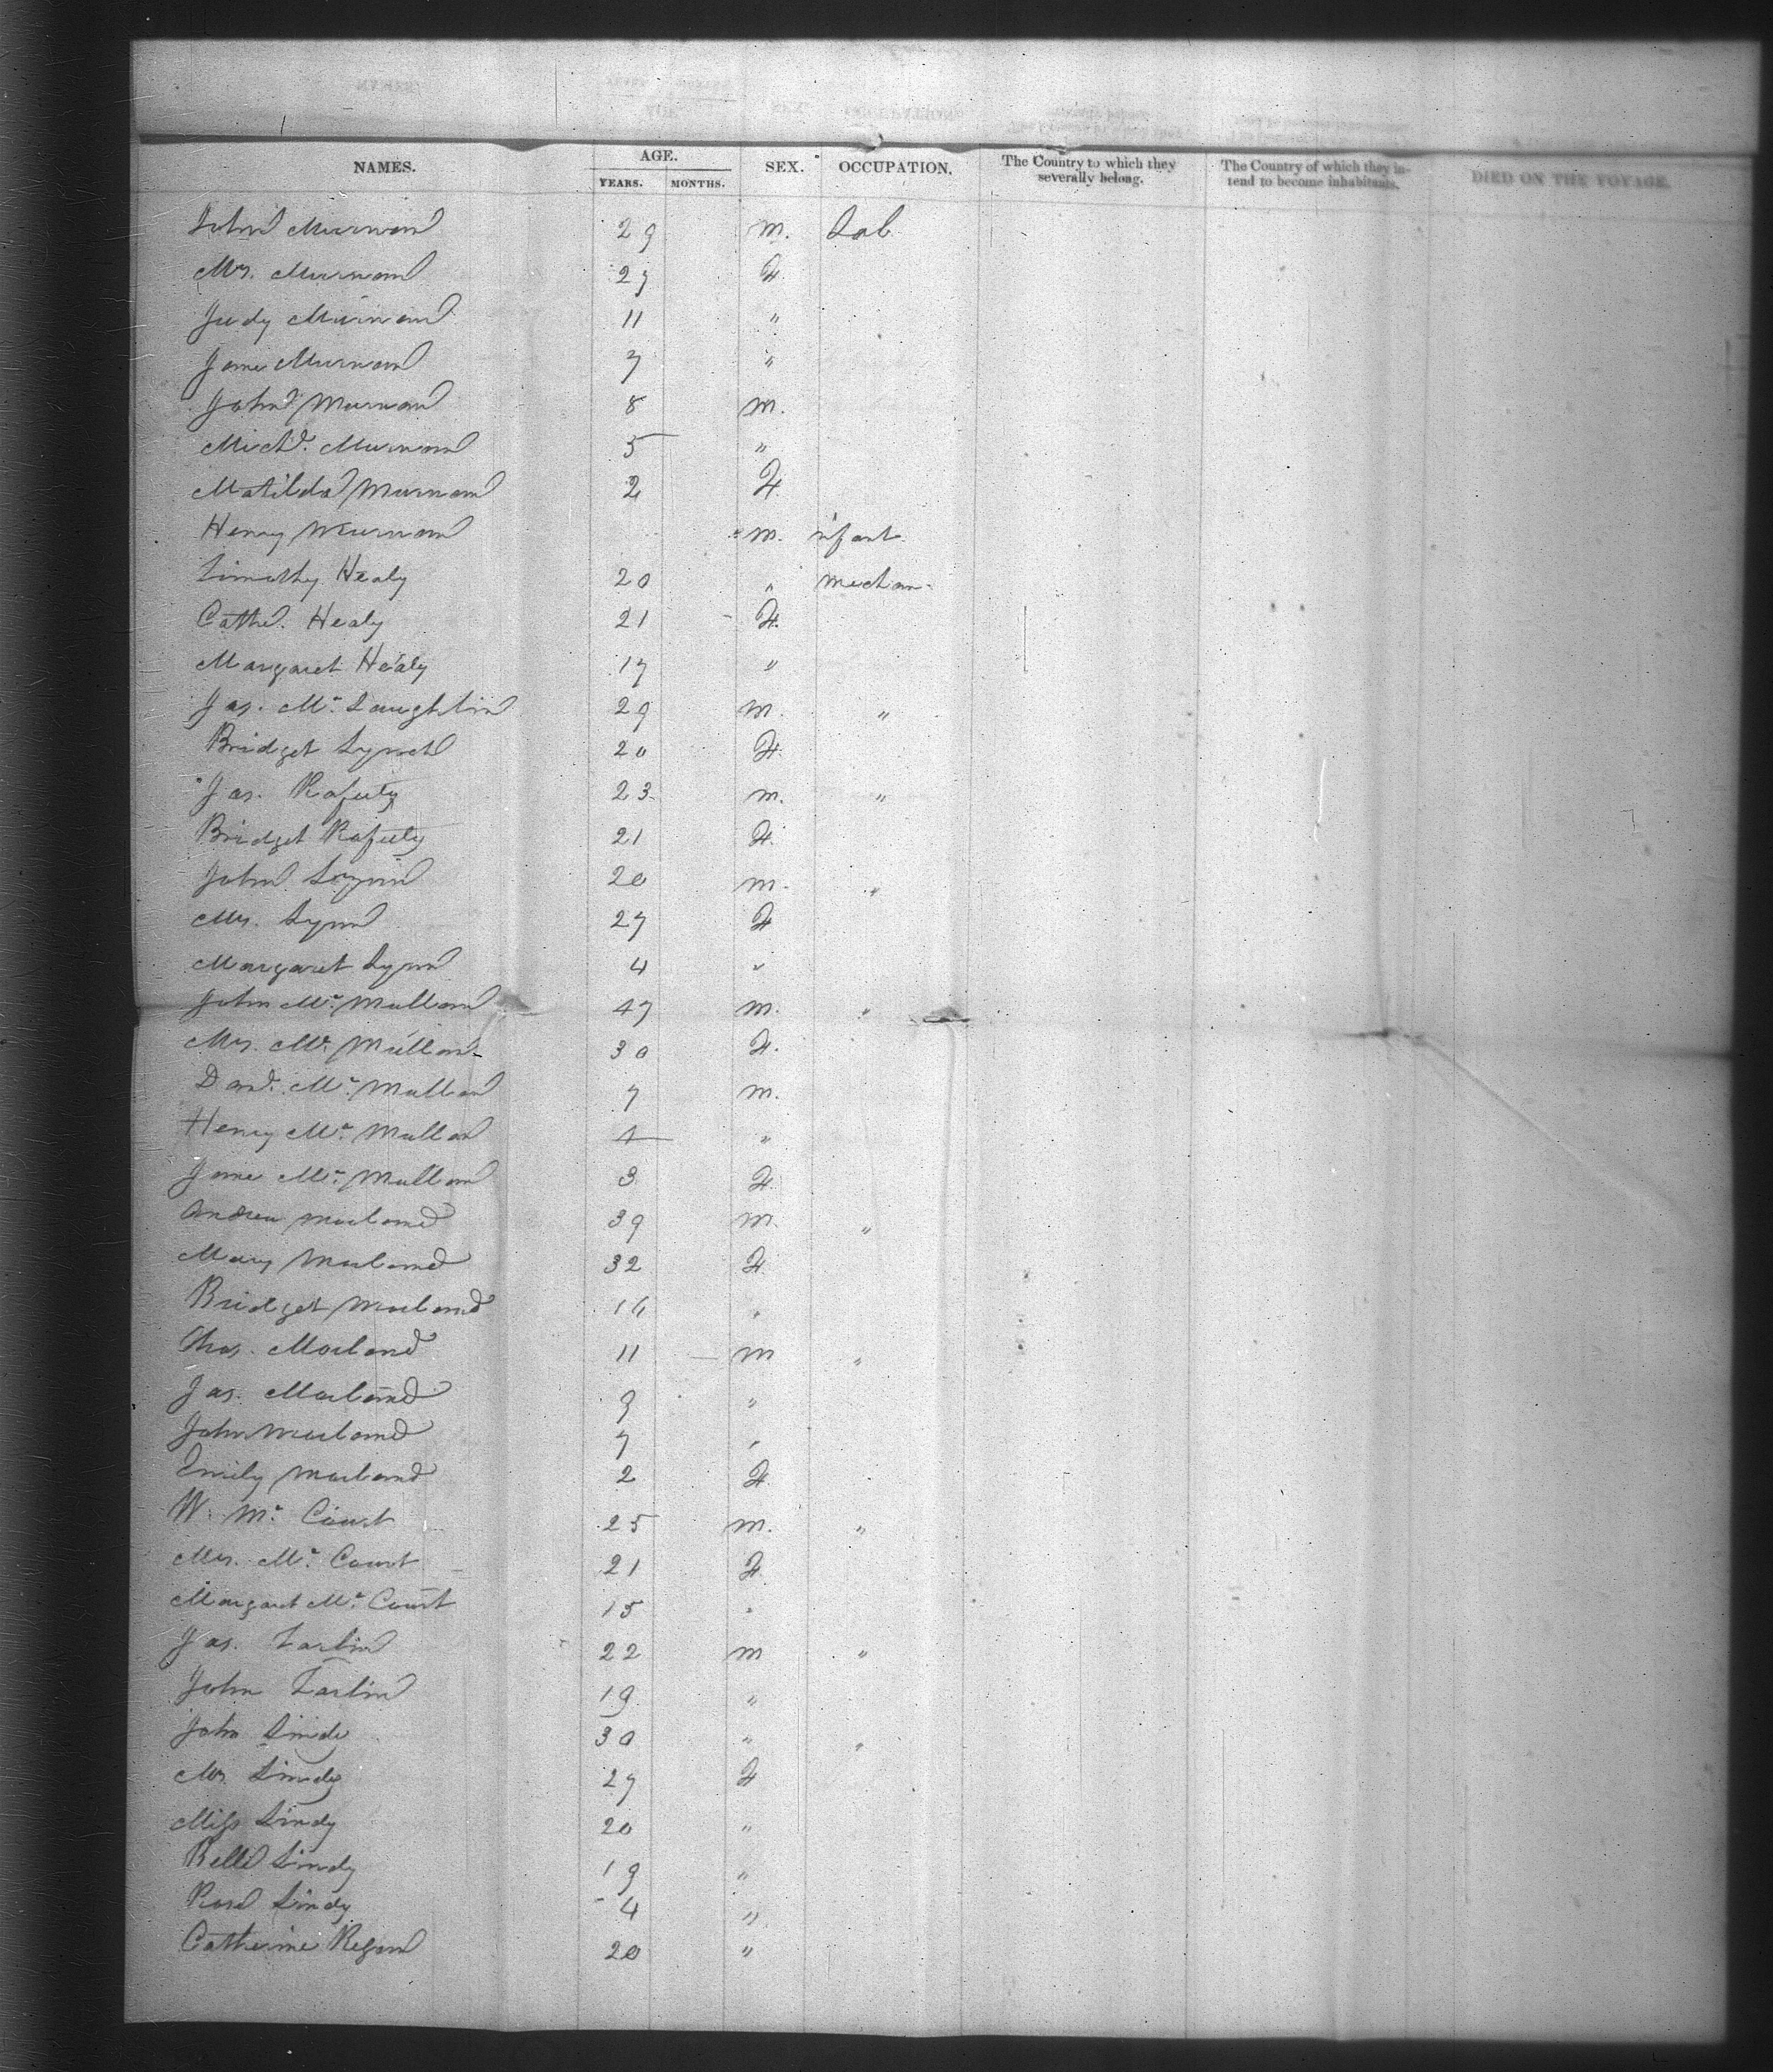 NAMES. AGE. SEX. OCCUPATION. The Country to which they severally belong. The Country of which they intend to become inhabitants. DIED ON THE VOYAGE.
YEARS. MONTHS.
John Murnan 29 m. Lab
Mrs. Murnan 27 F
Judy Murnan 11 "
Jane Murnan 7 "
John Murnan 8 m.
Michl. Murnan 5 "
Matilda Murnan 2 F
Henry Murnan m. infant
Timothy Healy 20 " mechan-
Cathe. Healy 21 F
Margaret Healy 17 "
Jas. Mc Laughlin 29 m. "
Bridget Lynch 20 F
Jas. Rafuty 23 m. "
Bridget Rafuty 21 F
John Lynn 20 m. "
Mrs. Lynn 27 F
Margaret Lynn 4 "
John Mc Mullan 47 m. "
Mrs. Mc Mullan 30 F.
Danl. Mc Mullan 7 m.
Henry Mc Mullan 4 "
Jane Mc Mullan 3 F
Andrew Morland 39 m. "
Mary Morland 32 F
Bridget Morland 16 "
Thos. Morland 11 m "
Jas. Morland 9 "
John Morland 7 "
Emily Morland 2 F
W. Mc Court 25 m. "
Mrs. Mc Court 21 F
Margaret Mc Court 15 "
Jas. Tarlin 22 m "
John Tarlin 19 "
John Lindy 30 " "
Mrs Lindy 27 F
Miss Lindy 20 "
Belle Lindy 19 "
Rose Lindy 4 "
Catherine Regan 20 "